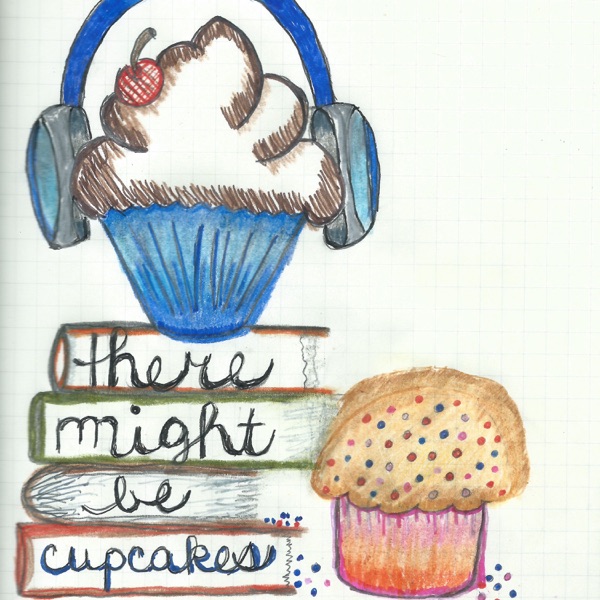 there
might
be
cupcakes